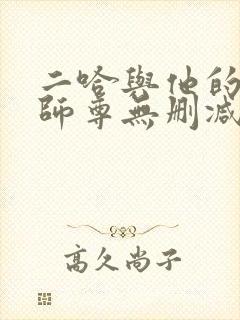 二哈與他的
師尊無刪減
高久尚子